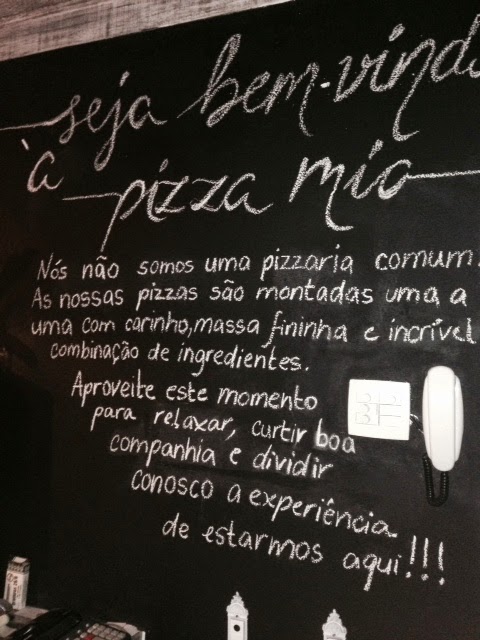 seja bem-vindo
à pizza mio
Nós não somos uma pizzaria comum.
As nossas pizzas são montadas uma a
uma com carinho, massa fininha e incrível
combinação de ingredientes.
Aproveite este momento
para relaxar, curtir boa
companhia e dividir
conosco a experiência
de estarmos aqui!!!